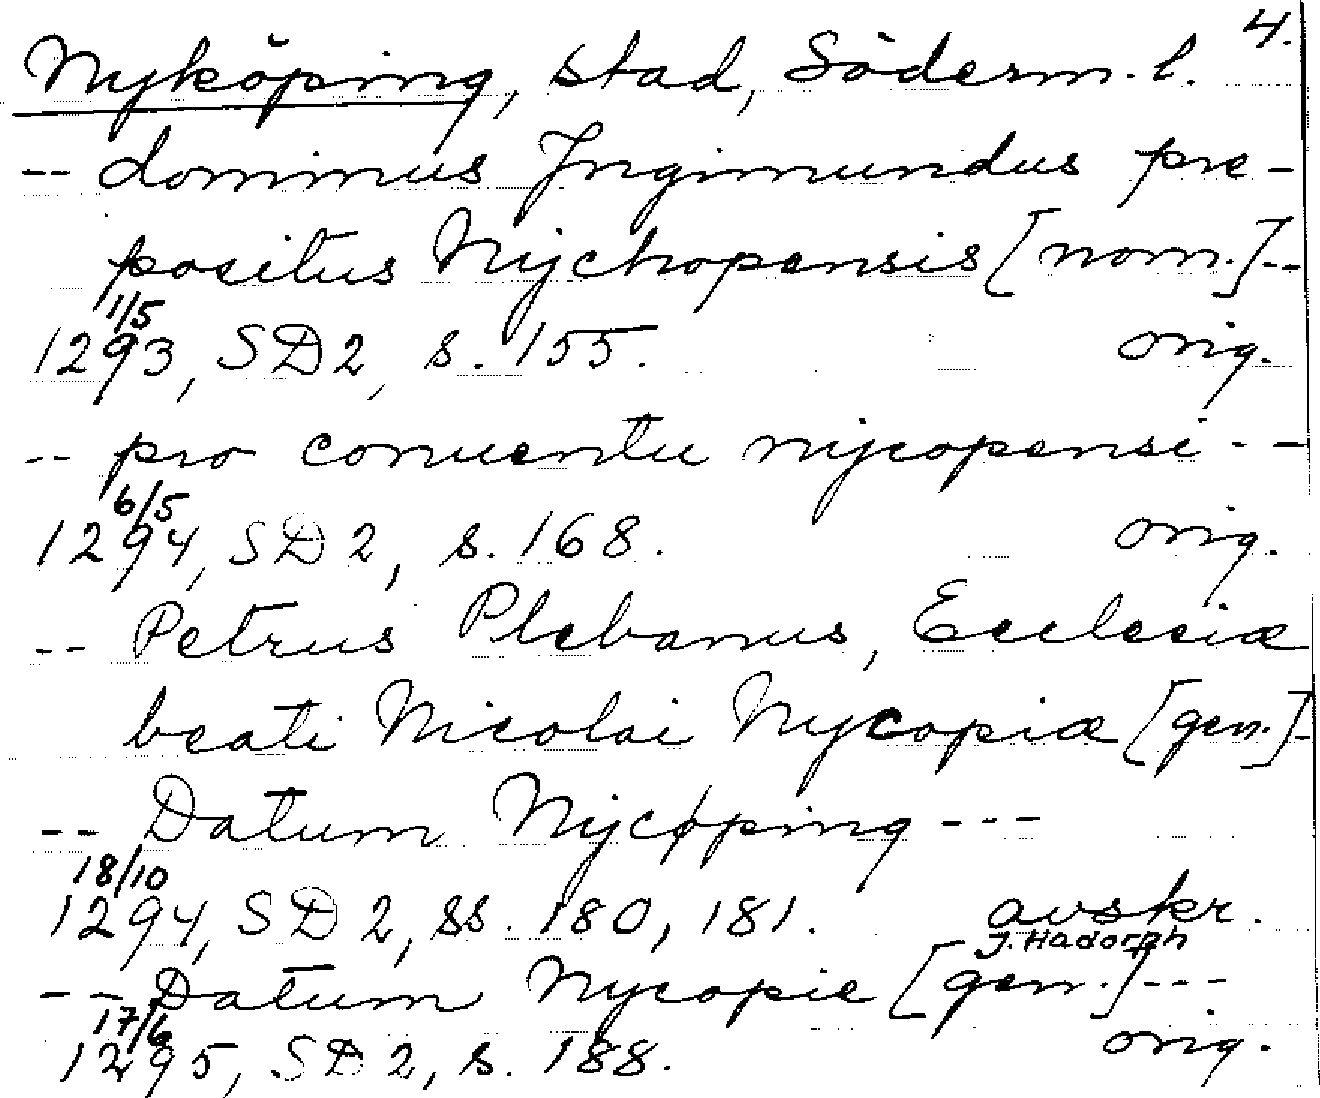 4.
Nyköping, stad, Söderm. l.
-- dominus Jngimundus pre-
positus Nychopensis [nom.]--
1/5
1293, SD2, s. 155. orig.
-- pro conuentu nycopensi --
6/5
1294, SD2, s. 168. orig.
-- Petrus Plebanus, Ecclesiæ
beati Nicolai Nycopiæ [gen.]-
-- Datum Nycøping ---
18/10
1294, SD2, ss. 180, 181. avskr.
J. Hadorph
-- Datum Nycopie [gen.]---
17/6
1295, SD2, s. 188. orig.